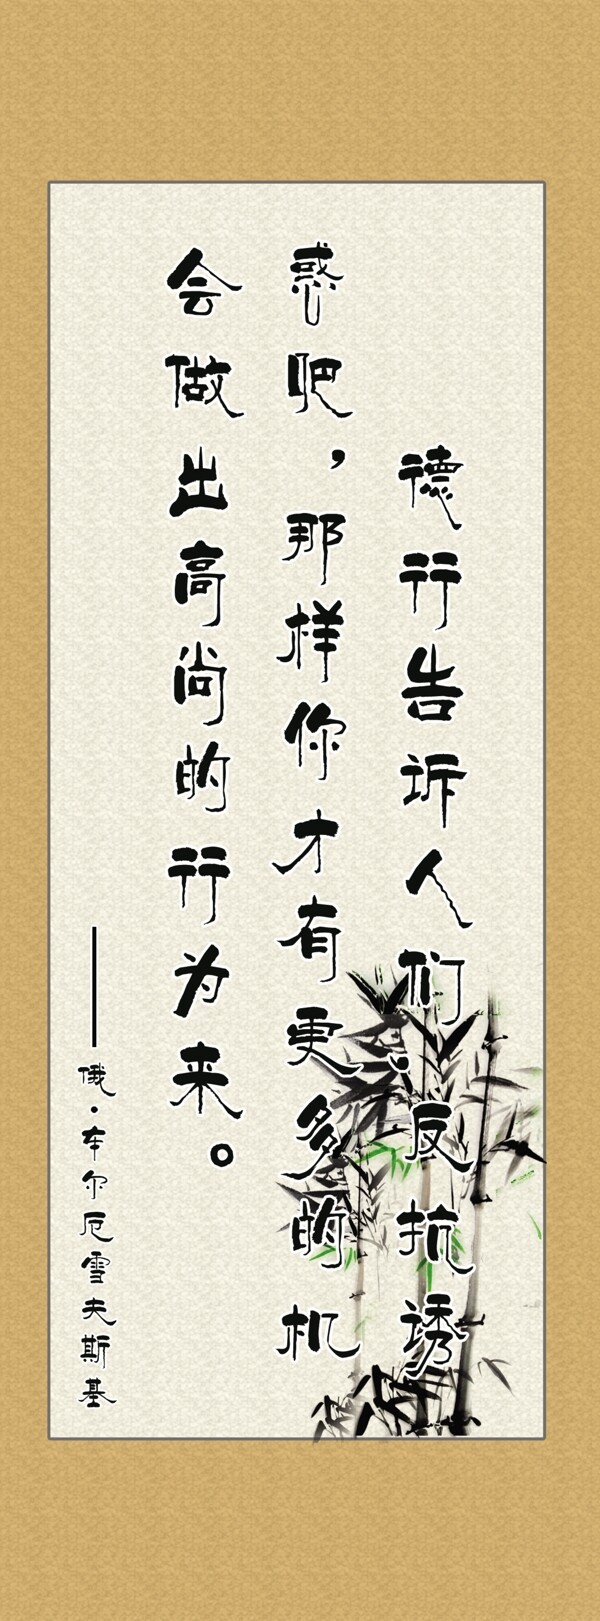 德行告诉人们:反抗诱
惑吧，那样你才有更多的机
会做出高尚的行为来。
——俄·车尔厄雪夫斯基